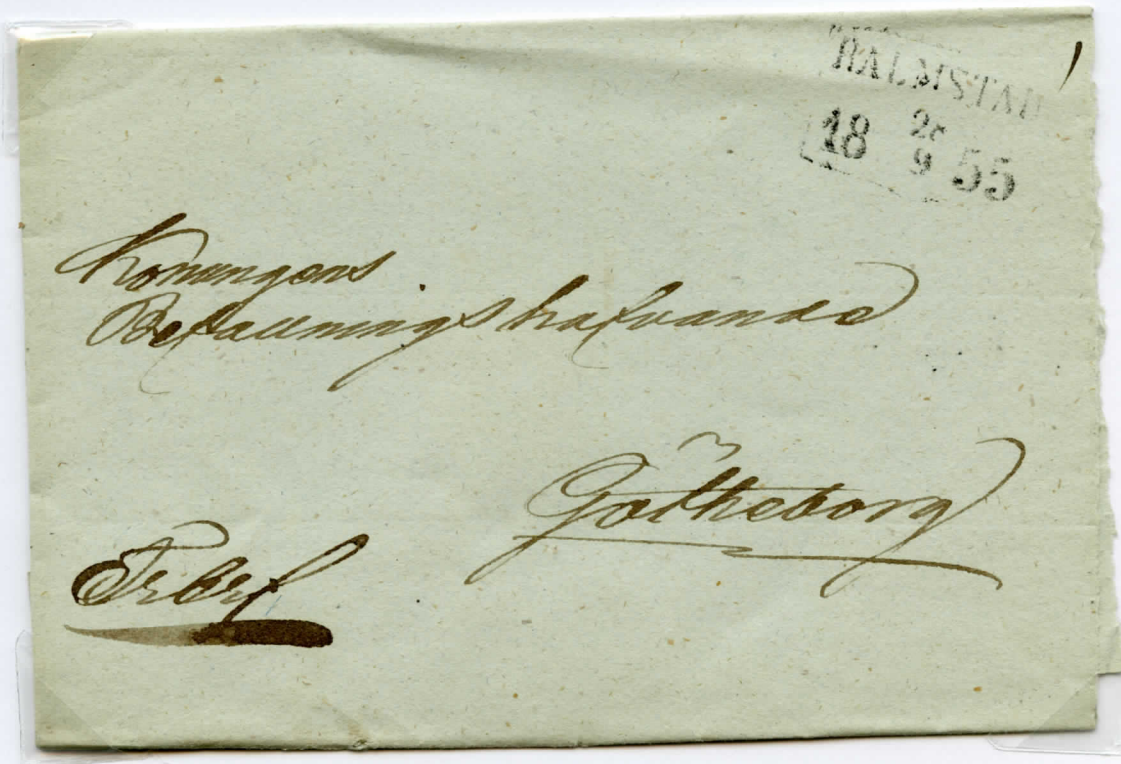 HALMSTAD
18 9 55
Konungens
Befallningshafvande
Götheborg